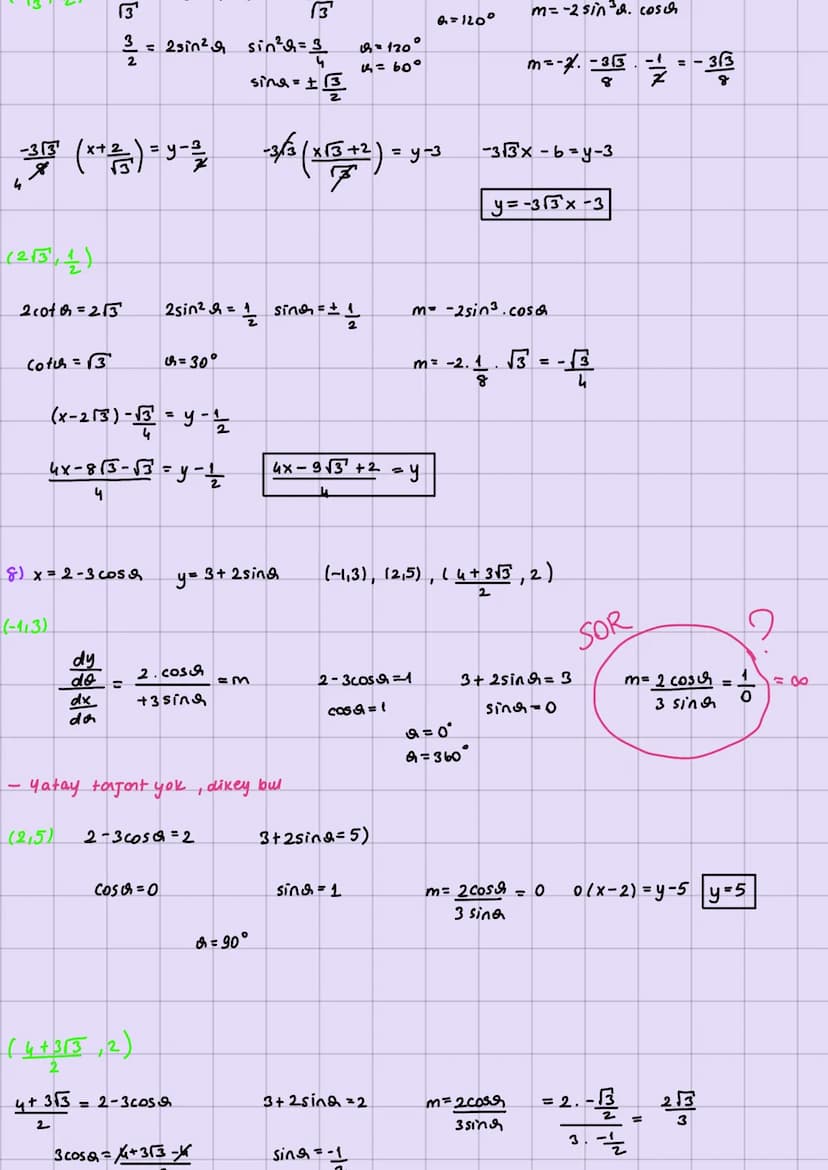 √3 √3 θ=120° m=-2sin³θ.cosθ
3/2 = 2sin²θ sin²θ=3/4 θ=120°
sinθ=±√3/2 θ=60° m=-2.-3√3/8.-1/2=-3√3/8
-3√3/8 (x+2/√3)=y-3/2 -3√3(x√3+2/√3)=y-3 -3√3x-6=y-3
4
y=-3√3x-3
(2√3,1/2)
2cotθ=2√3 2sin²θ=1/2 sinθ=±1/2 m=-2sin³.cosθ
cotθ=√3 θ=30° m=-2.1/8.√3=-√3/4
(x-2√3)-√3/4=y-1/2
4x-8√3-√3/4=y-1/2 4x-9√3+2/4=y
8) x=2-3cosθ y=3+2sinθ (-1,3), (2,5), (4+3√3/2,2)
(-1,3)
SOR ?
dy/dθ / dx/dθ = 2.cosθ/+3sinθ=m 2-3cosθ=-1 3+2sinθ=3 m=2cosθ/3sinθ=1/0 =∞
cosθ=1 sinθ=0
θ=0°
θ=360°
- Yatay tanjant yok, dikey bul
(2,5) 2-3cosθ=2 3+2sinθ=5)
cosθ=0 sinθ=1 m=2cosθ/3sinθ=0 0(x-2)=y-5 y=5
θ=90°
(4+3√3/2,2)
4+3√3/2=2-3cosθ 3+2sinθ=2 m=2cosθ/3sinθ =2.-√3/2 / 3.-1/2 = 2√3/3
3cosθ=4+3√3-4 sinθ=-1